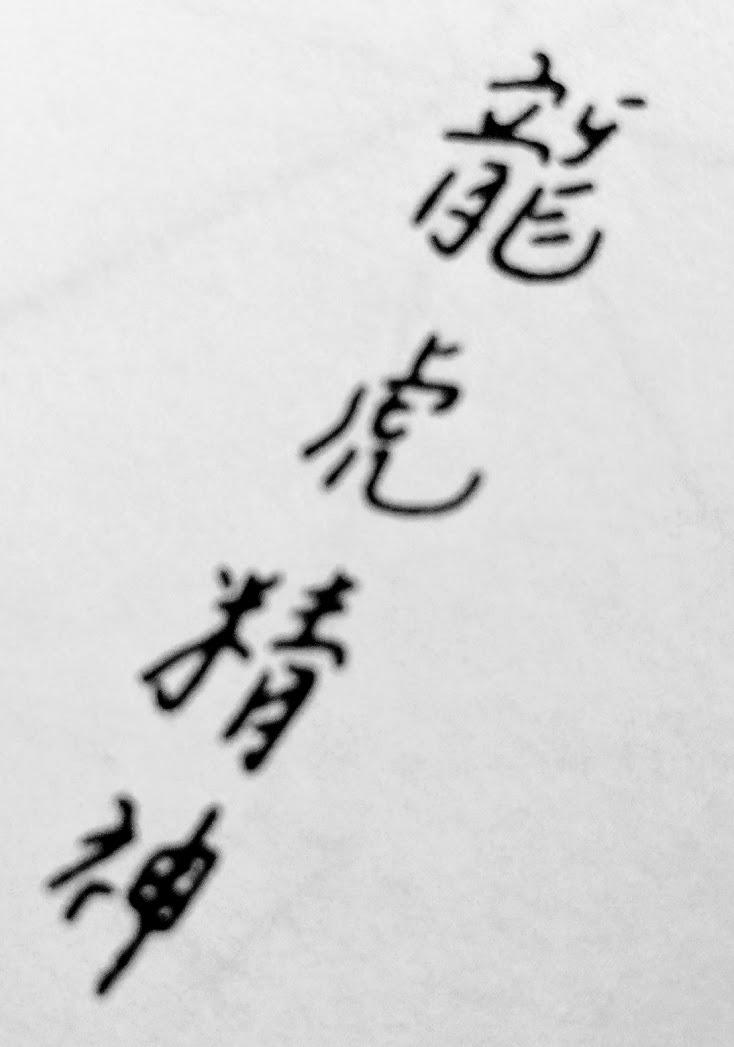 龍虎精神